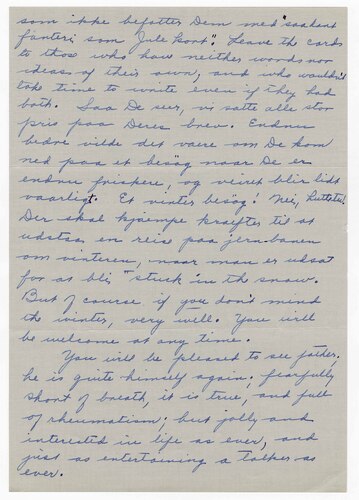 som ikke befatter Dem med "saakent
fanteri som Jule kort". Leave the cards
to those who have neither words nor
ideas of their own, and who wouldn't
take time to write even if they had
both. Saa De seer, vi satte alle stor
pris paa Deres brev. Endnu
bedre vilde det være om De kom
ned paa et besög naar De er
endnu friskere, og veiret blir lidt
vaarligt. Et vinter besög! Nei,
Der skal kjæmpe kræfter til at
udstaa en reis paa jernbanen
om vinteren, naar man er udsat
for at bli "stuck" in th snow.
But of course, if you don't mind
the winter, very well. You will
be welcome at any time.
You will be pleased to see father,
he is quite himself again; fearfully
short of breath, it is true, and full
of rheumatism; but jolly and
interested in life as ever, and
just as entertaining a talker as
ever.